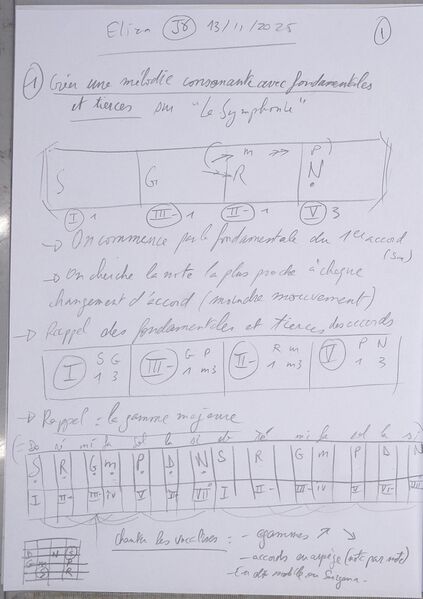 Eliza J8 13/11/2025 1
1 Créer une mélodie consonante avec fondamentales
et tierces sur "Le Symphonie"
m P
S G R N
I 1 III- 1 II- 1 V 3
→ On commence par la fondamentale du 1er accord
(Sa)
→ On cherche la note la plus proche à chaque
changement d'accord (moindre mouvement)
→ Rappel des fondamentales et tierces des accords
I S G III- G P II- R m V P N
1 3 1 m3 1 m3 1 3
→ Rappel : la gamme majeure
(= Do ré mi fa sol la si do ré mi fa sol la si)
S R G m P D N S R G m P D N
I II- III- IV V VI- VII I II- III- IV V VI- VII
chanter les vocalises : - gammes ↗ ↘
- accords en arpège (note par note)
- En do mobile ou Sargam -